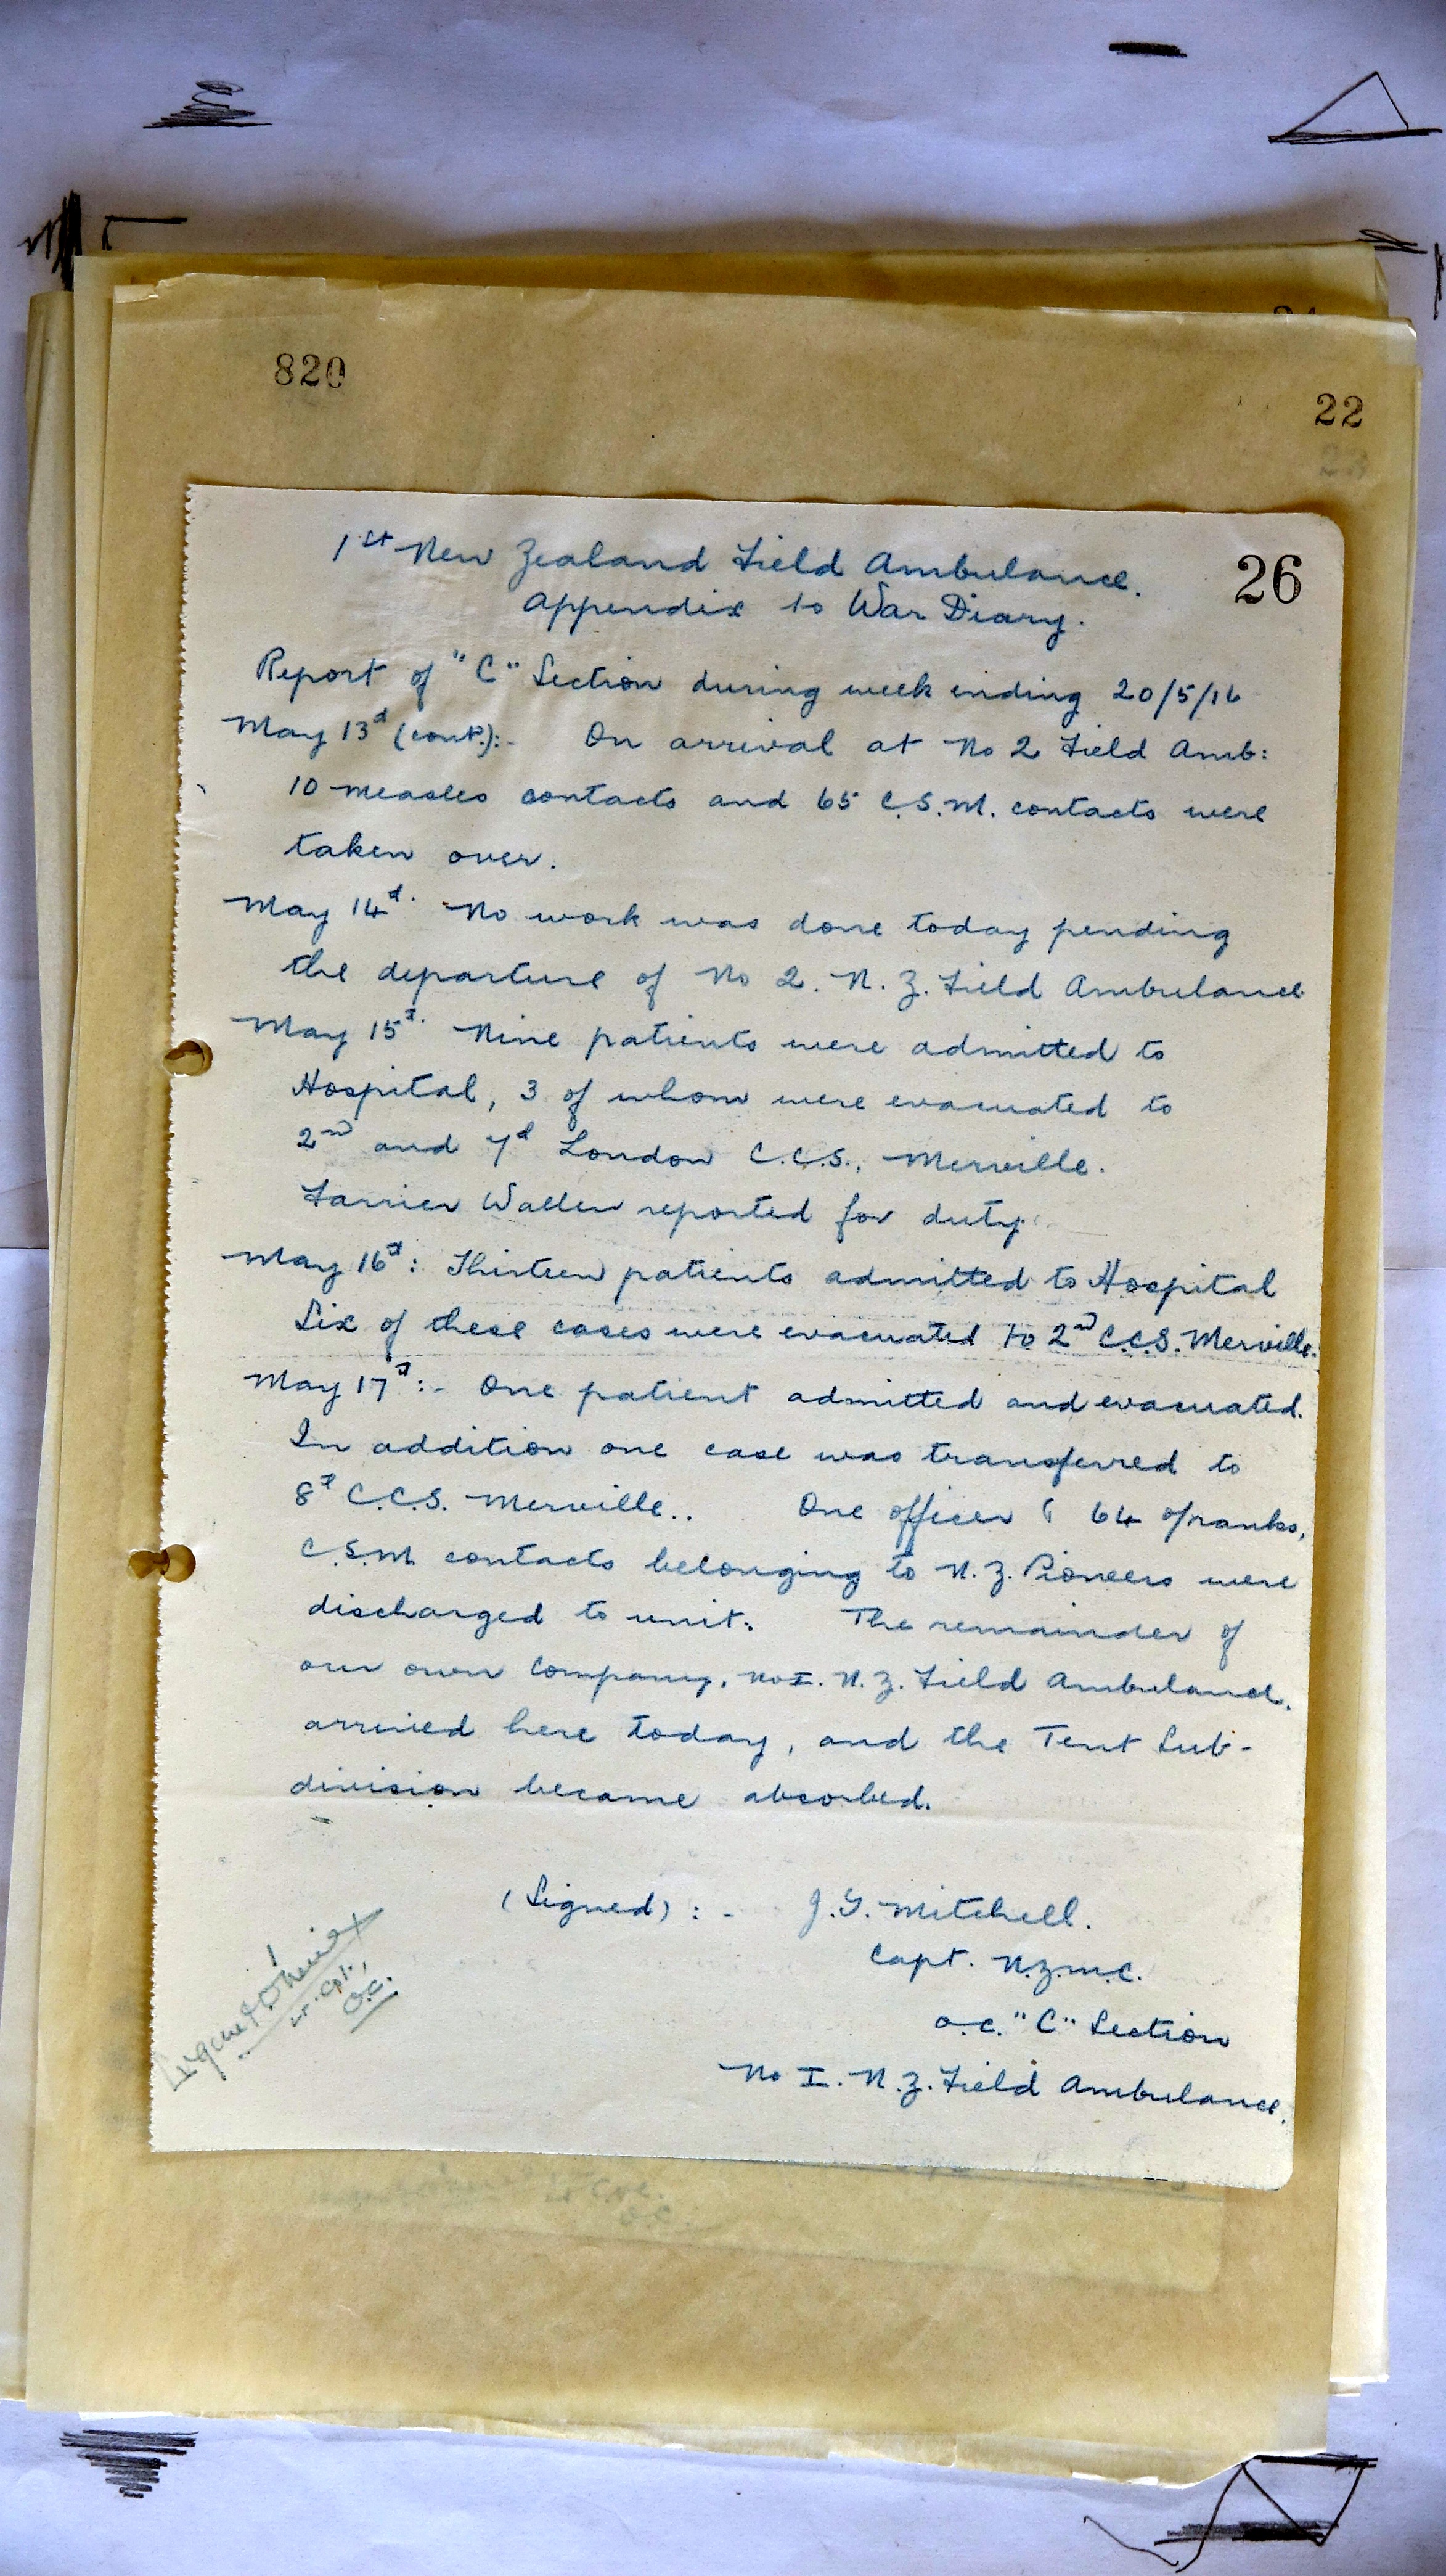 820
22
26
1st New Zealand Field Ambulance.
Appendix to War Diary.
Report of "C" Section during week ending 20/5/16
May 13th (cont.):- On arrival at No 2 Field Amb:
10 measles contacts and 65 C.S.M. contacts were
taken over.
May 14th. No work was done today pending
the departure of No 2. N. Z. Field Ambulance
May 15th. Nine patients were admitted to
Hospital, 3 of whom were evacuated to
2nd and 7th London C.C.S., Merville.
Farrier reported for duty.
May 16th: Thirteen patients admitted to Hospital
Six of these cases were evacuated to 2nd C.C.S. Merville.
May 17th:- One patient admitted and evacuated.
In addition one case was transferred to
8th C.C.S. Merville.. One officer & 64 o/ranks,
C.S.M contacts belonging to N. Z. Pioneers were
discharged to unit. The remainder of
our own Company, No I. N. Z. Field Ambulance.
arrived here today, and the Tent Sub-
division became absorbed.
(Signed) :- J. G. Mitchell.
Capt. N.Z.M.C.
O.C. "C" Section
No I. N. Z. Field Ambulance.
O.C.